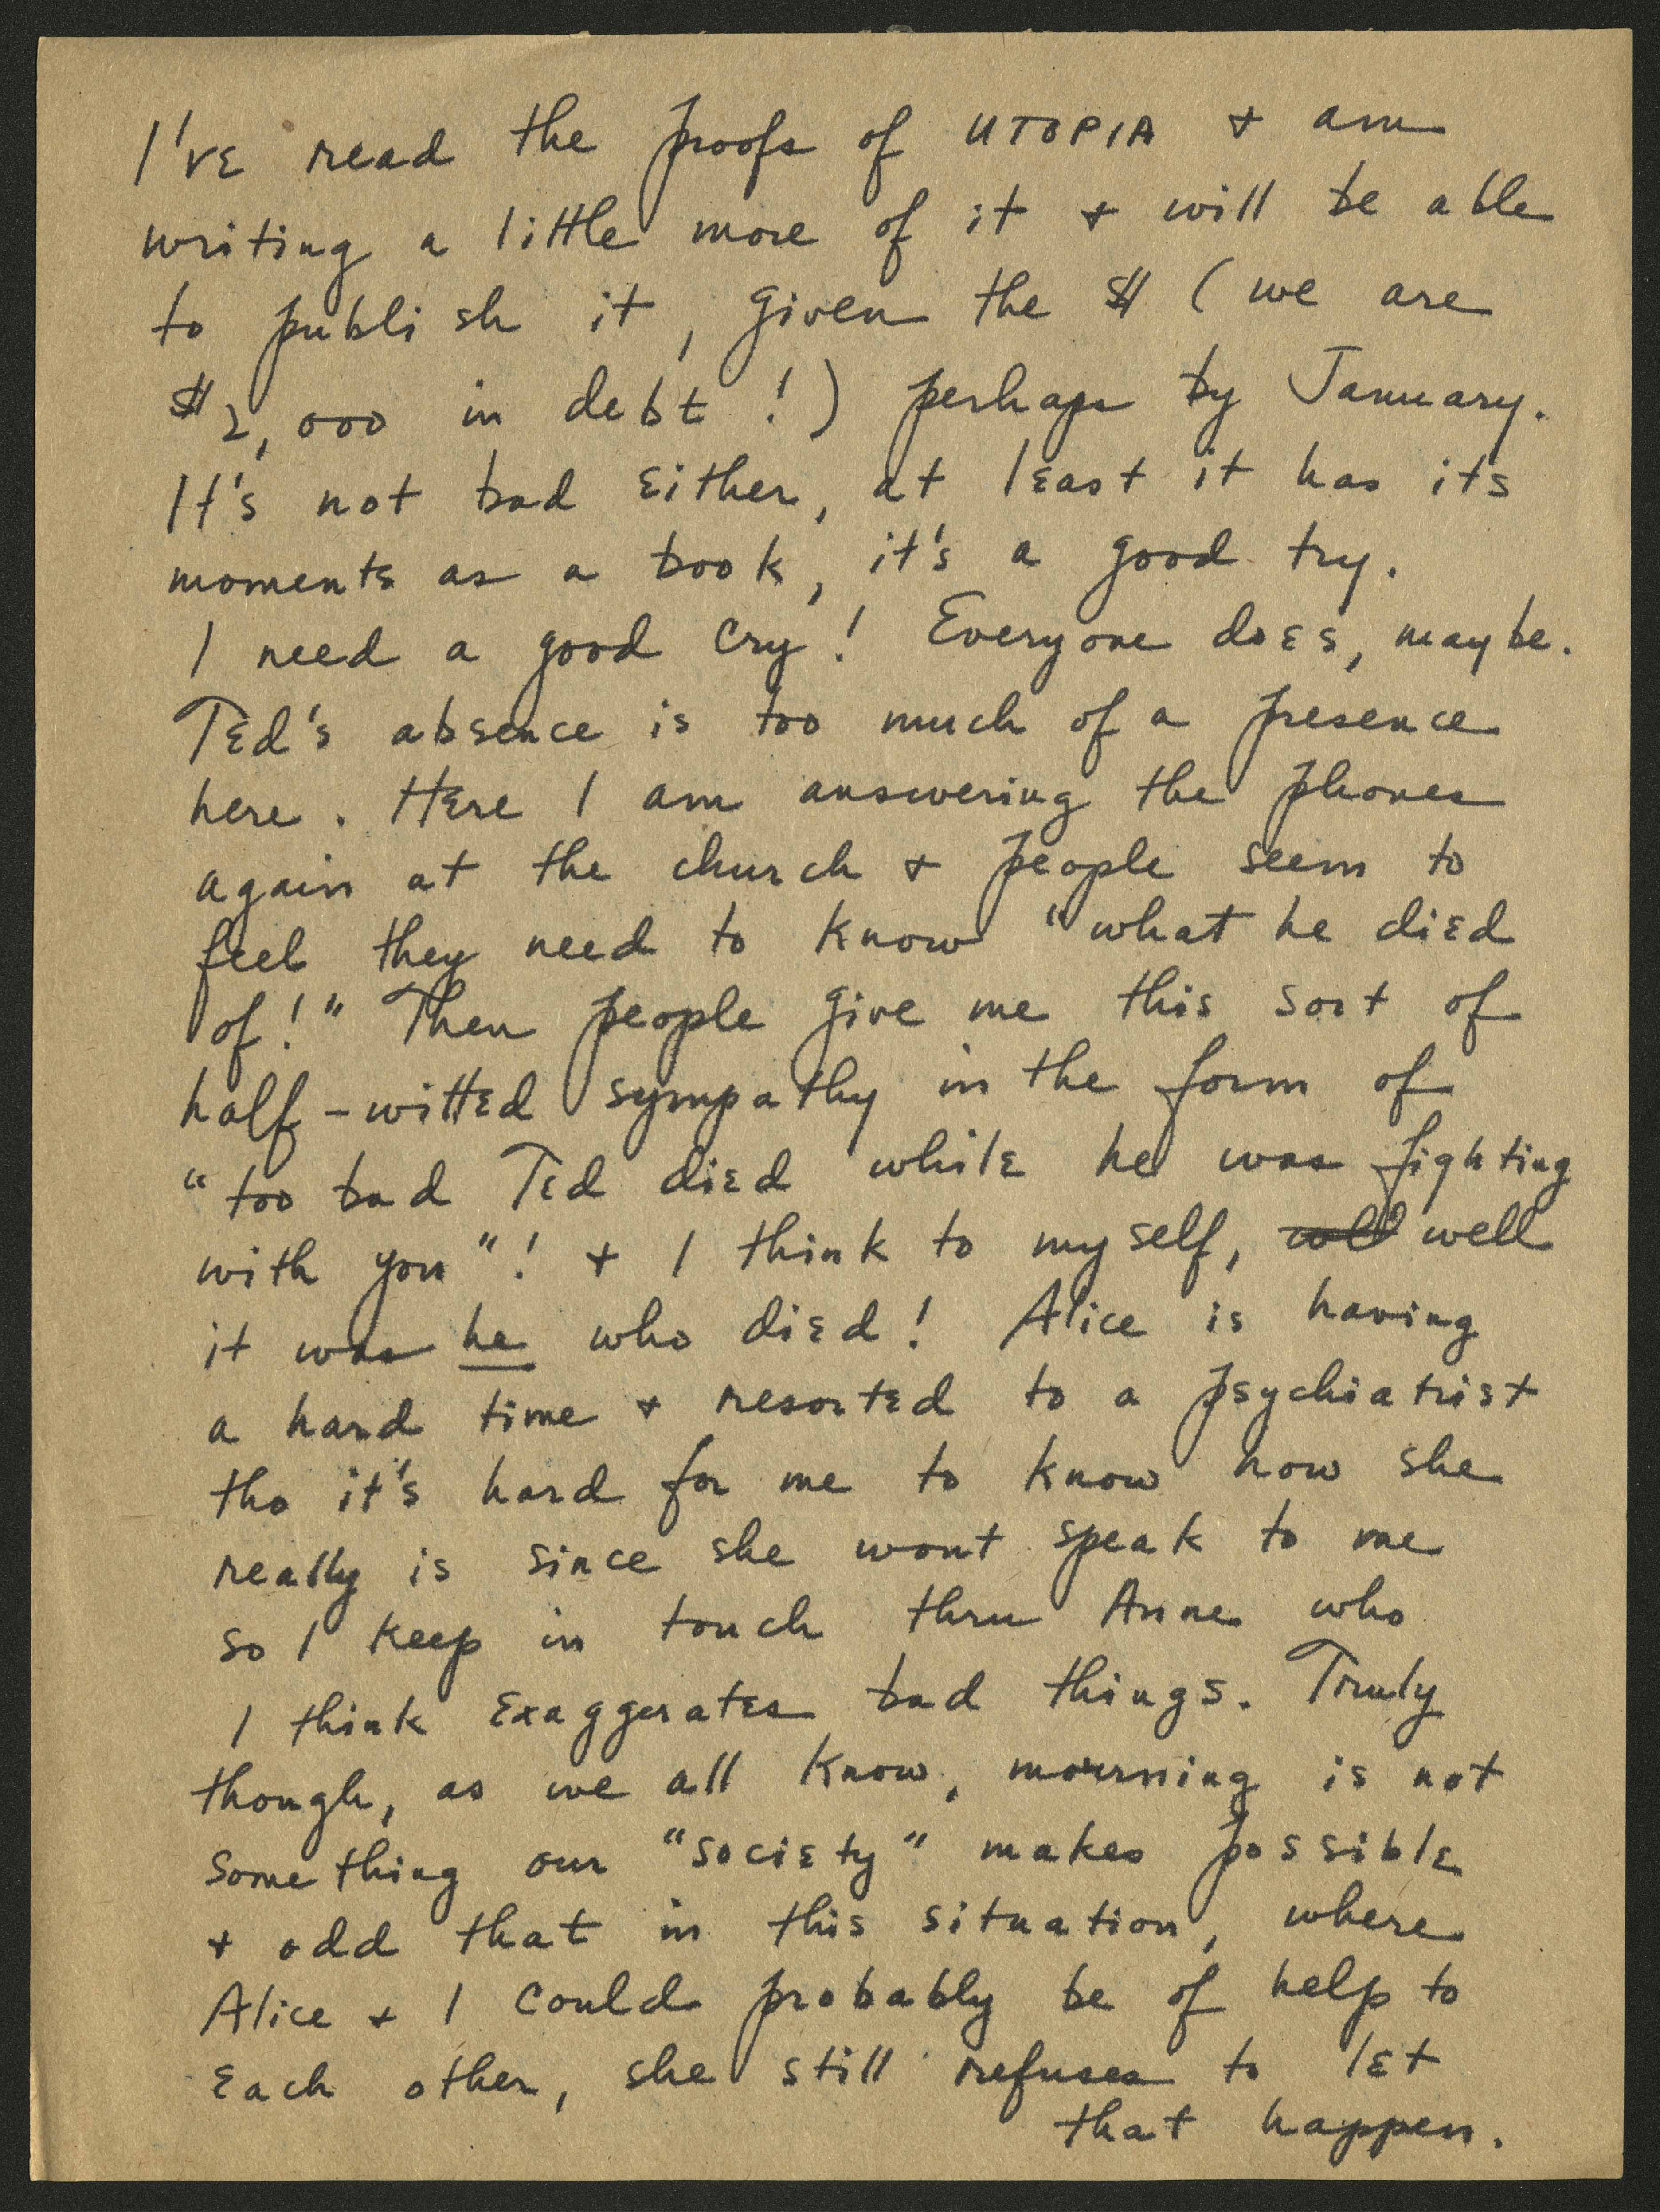 I've read the proofs of UTOPIA + am
writing a little more of it + will be able
to publish it, given the $ (we are
$2,000 in debt!) perhaps by January.
It's not bad either, at least it has its
moments as a book, it's a good try.
I need a good cry! Everyone does, maybe.
Ted's absence is too much of a presence
here. Here I am answering the phones
again at the church + people seem to
feel they need to know "what he died
of!" Then people give me this sort of
half-witted sympathy in the form of
"too bad Ted died while he was fighting
with you"! + I think to myself, well
it was he who died! Alice is having
a hard time + resorted to a psychiatrist
tho it's hard for me to know how she
really is since she wont speak to me
so I keep in touch thru Anne who
I think exaggerates bad things. Truly
though, as we all know, mourning is not
something our "society" makes possible
+ odd that in this situation, where
Alice + I could probably be of help to
each other, she still refuses to let
that happen.